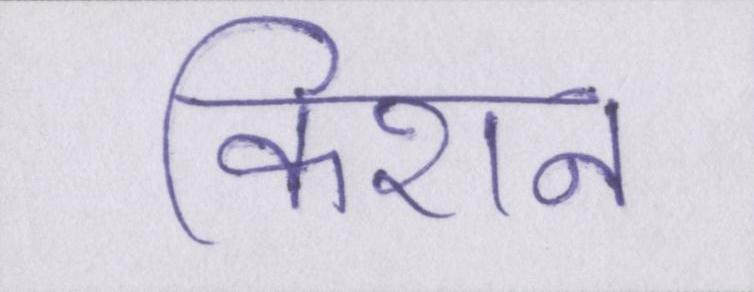 किशन